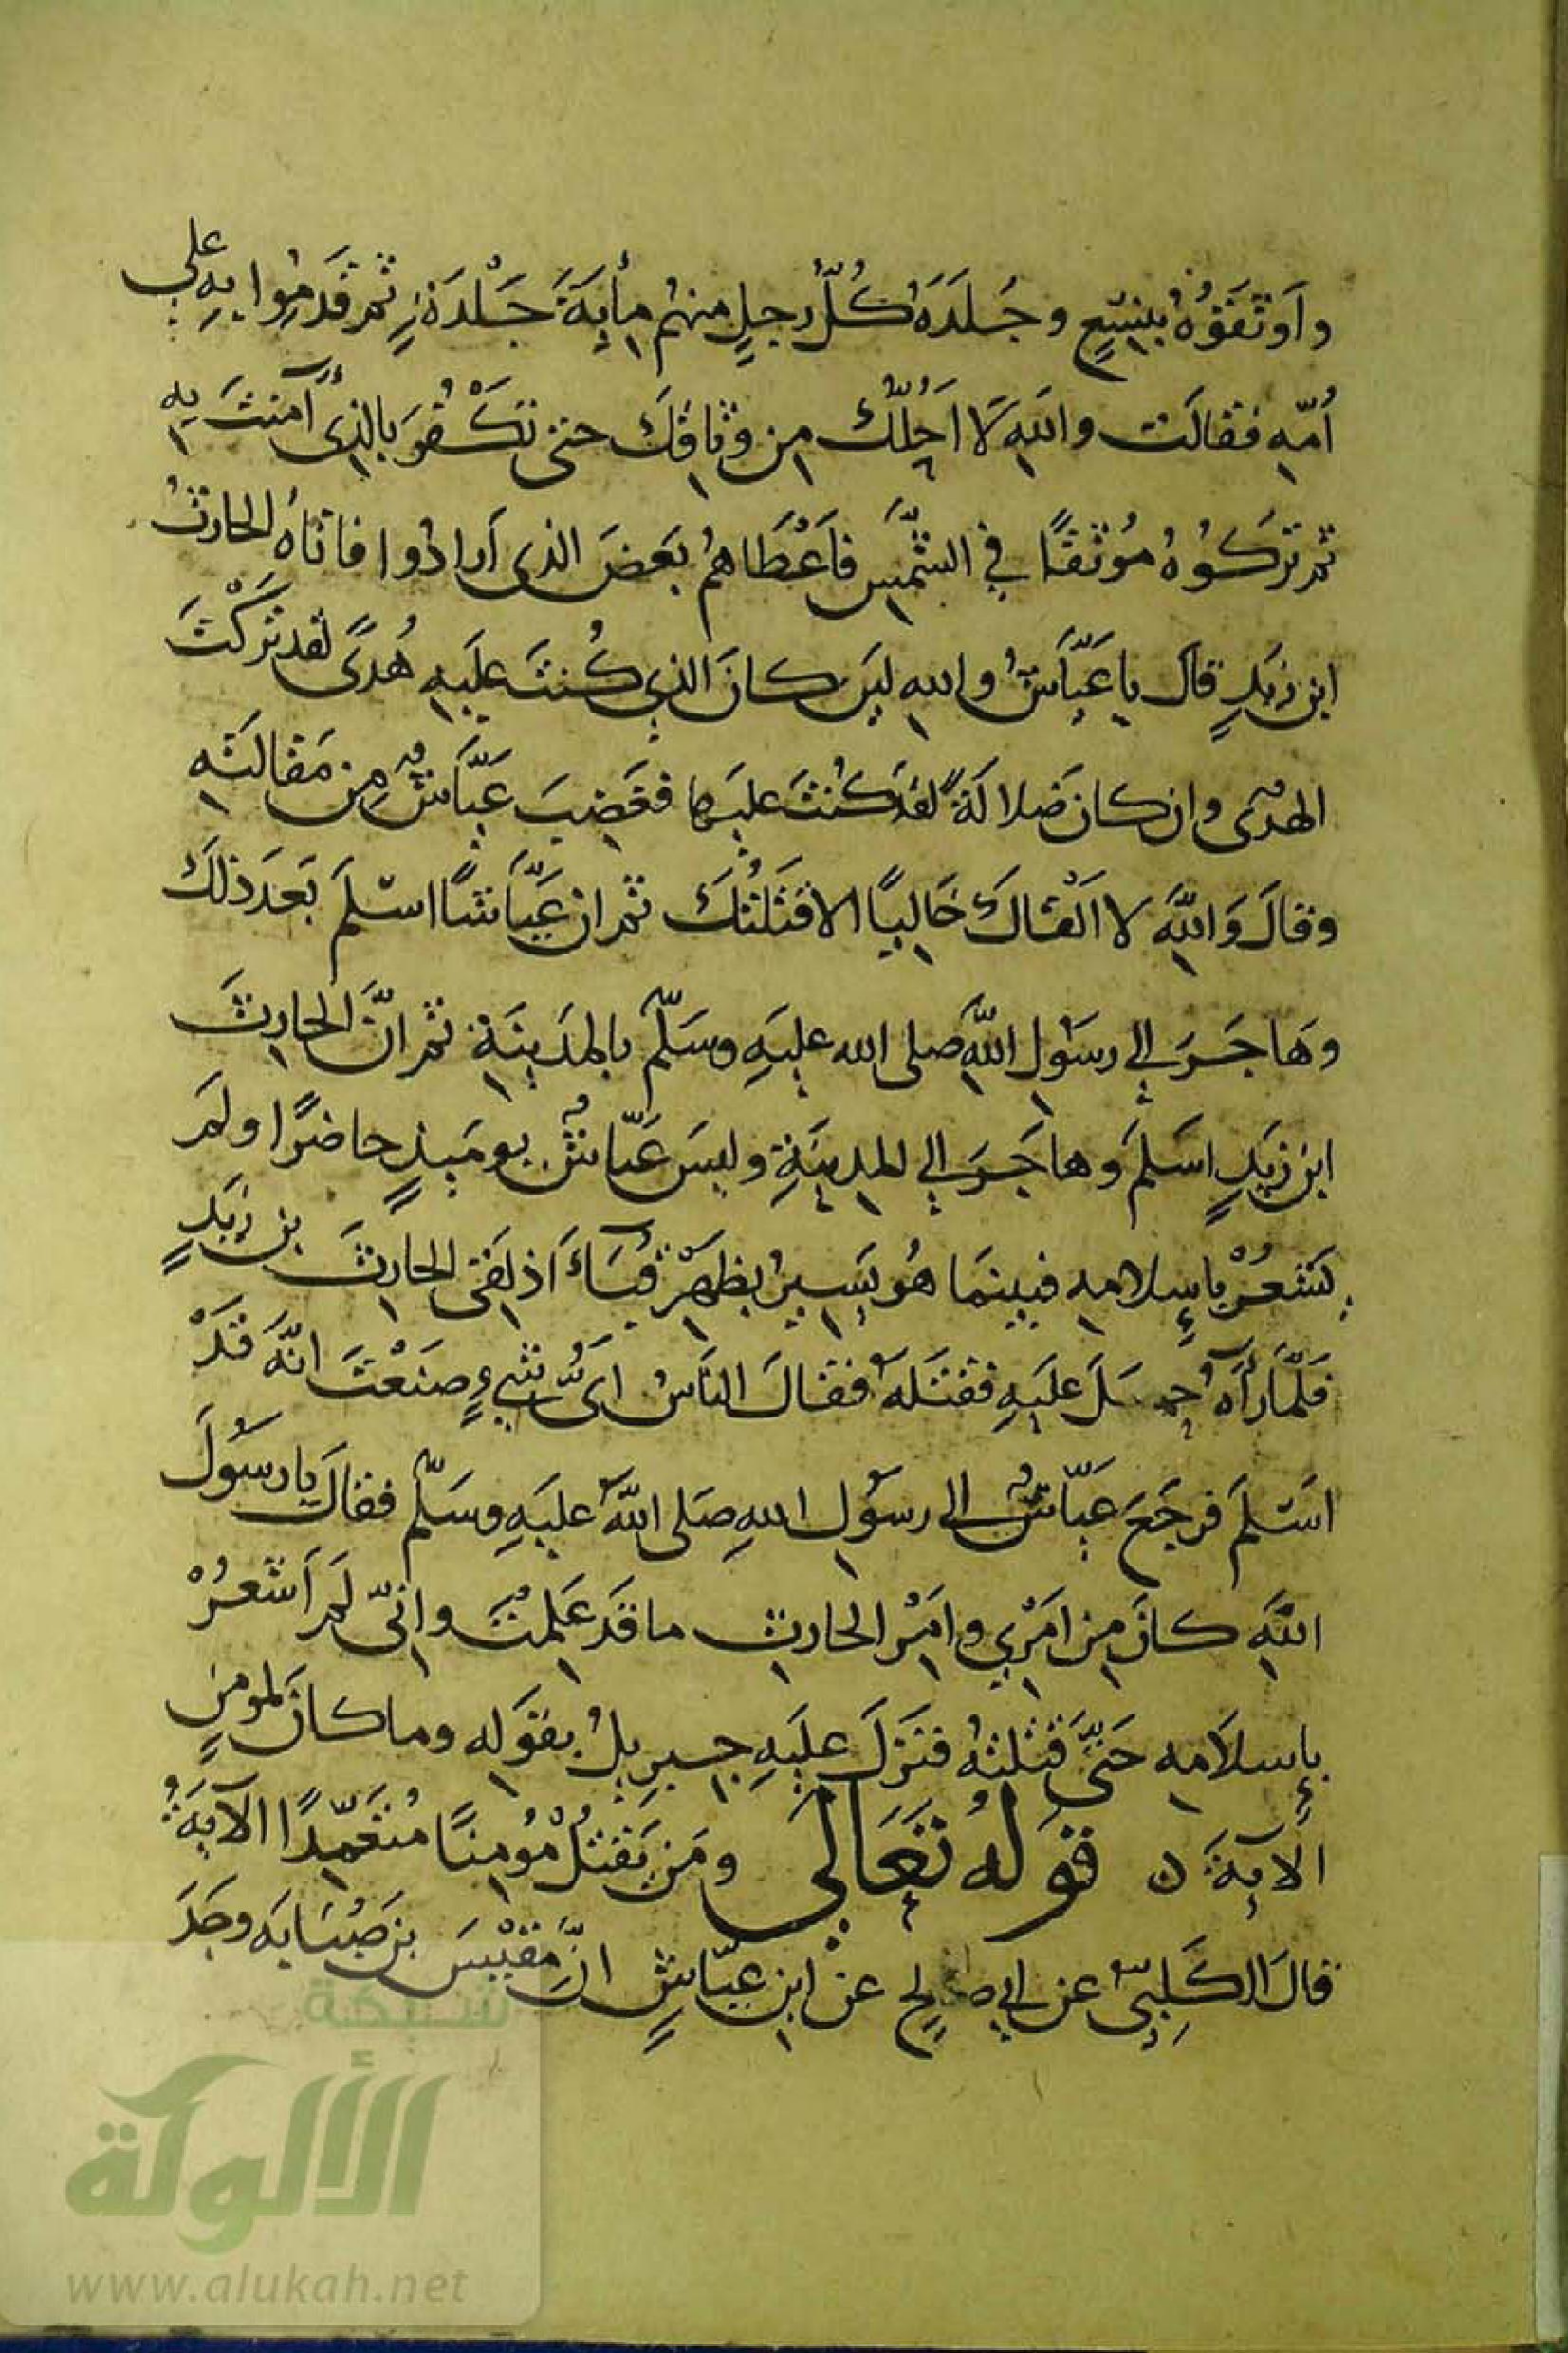 وَاَوثَقوُهُ بِنِسْعٍ وجَلَدَهُ كُلُّ رجلٍ منهُم مِأيةَ جَلْدَةٍ ثم قَدِمُوا بهِ على
اُمّهِ فقالَت واللهِ لَا اُحِلُّكَ مِن وثاقِكَ حتى تكْفُرَ بالذِى آمنتَ بِهِ
ثم تركوُهُ مُوثقًا في الشَّمسِ فاَعْطَاهُم بَعضَ الذى اَرادُوا فاتاهُ الحارثُ
ابن زيَدٍ قالَ يا عَيَّاشُ والله لين كانَ الذي كُنتَ عليَهِ هُدًى لقد تَركْتَ
الهدُى وان كان ضَلالَةً لقد كُنتَ عليها فغَضِبَ عَيَّاشٌ مِن مَقالتَهِ
وقالَ وَاللهِ لا اَلْقاكَ خَاليًا الا قتَلتُكَ ثم ان عَيَّاشًا اسْلمَ بَعدَ ذلكَ
وهَاجَرَ الي رسَوُلِ اللَّهِ صلى الله عليَهِ وسَلّم بالمدَينَةِ ثم انَّ الحارثَ
ابن زيَدٍ اسَلمَ وهاجَرَ الي المدينَةِ وليسَ عَيّاشٌ يومَيذٍ حاضرًا ولم
يَشعُرْ بإِسلامهِ فبينمَا هُو يَسيِرُ بظهرِ قُبَاءَ اذ لِقَى الحارثَ بن زيَدٍ
فلمَّا رأَهُ حمَلَ عليَهِ فقتَلَهُ فقالَ الناَسُ اىُّ شيءٍ صنَعْتَ انَّهَ قَدْ
اسَلمَ فرجَعَ عيَّاشٌ الى رسوُلِ اللهِ صَلى اللَّهُ عليَهِ وسَلّم فقالَ يا رسوُلَ
اللهِ كانَ مِن امَرِي وامَرِ الحارثِ ما قَد عَلِمْتَ وانّى لَم اَشعُرْ
بإِسلامهِ حَتىَّ قتلتهُ فنَزلَ عليَهِ جبريلُ بقَولهِ وما كانَ لمومنٍ
الآيةَ ن قوَلهُ تَعَالَى ومَن يَقتُلْ مُوْمِنًا مُتعَمِّدًا الآيةَ
قالَ الكَلِبيّ عن ابي صالحٍ عن ابنِ عبّاسٍ انَّ مِقْيَسَ بن صُبَابَه وجَدَ
شبكة
الألوكة
www.alukah.net